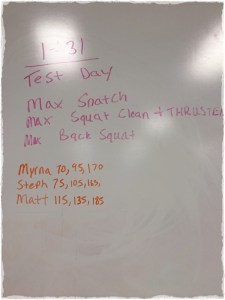 1-31
Test Day
Max Snatch
Max Squat Clean + THRUSTER
Max Back Squat
Myrna 70, 95, 170
Steph 75, 105, 165,
Matt 115, 135, 185